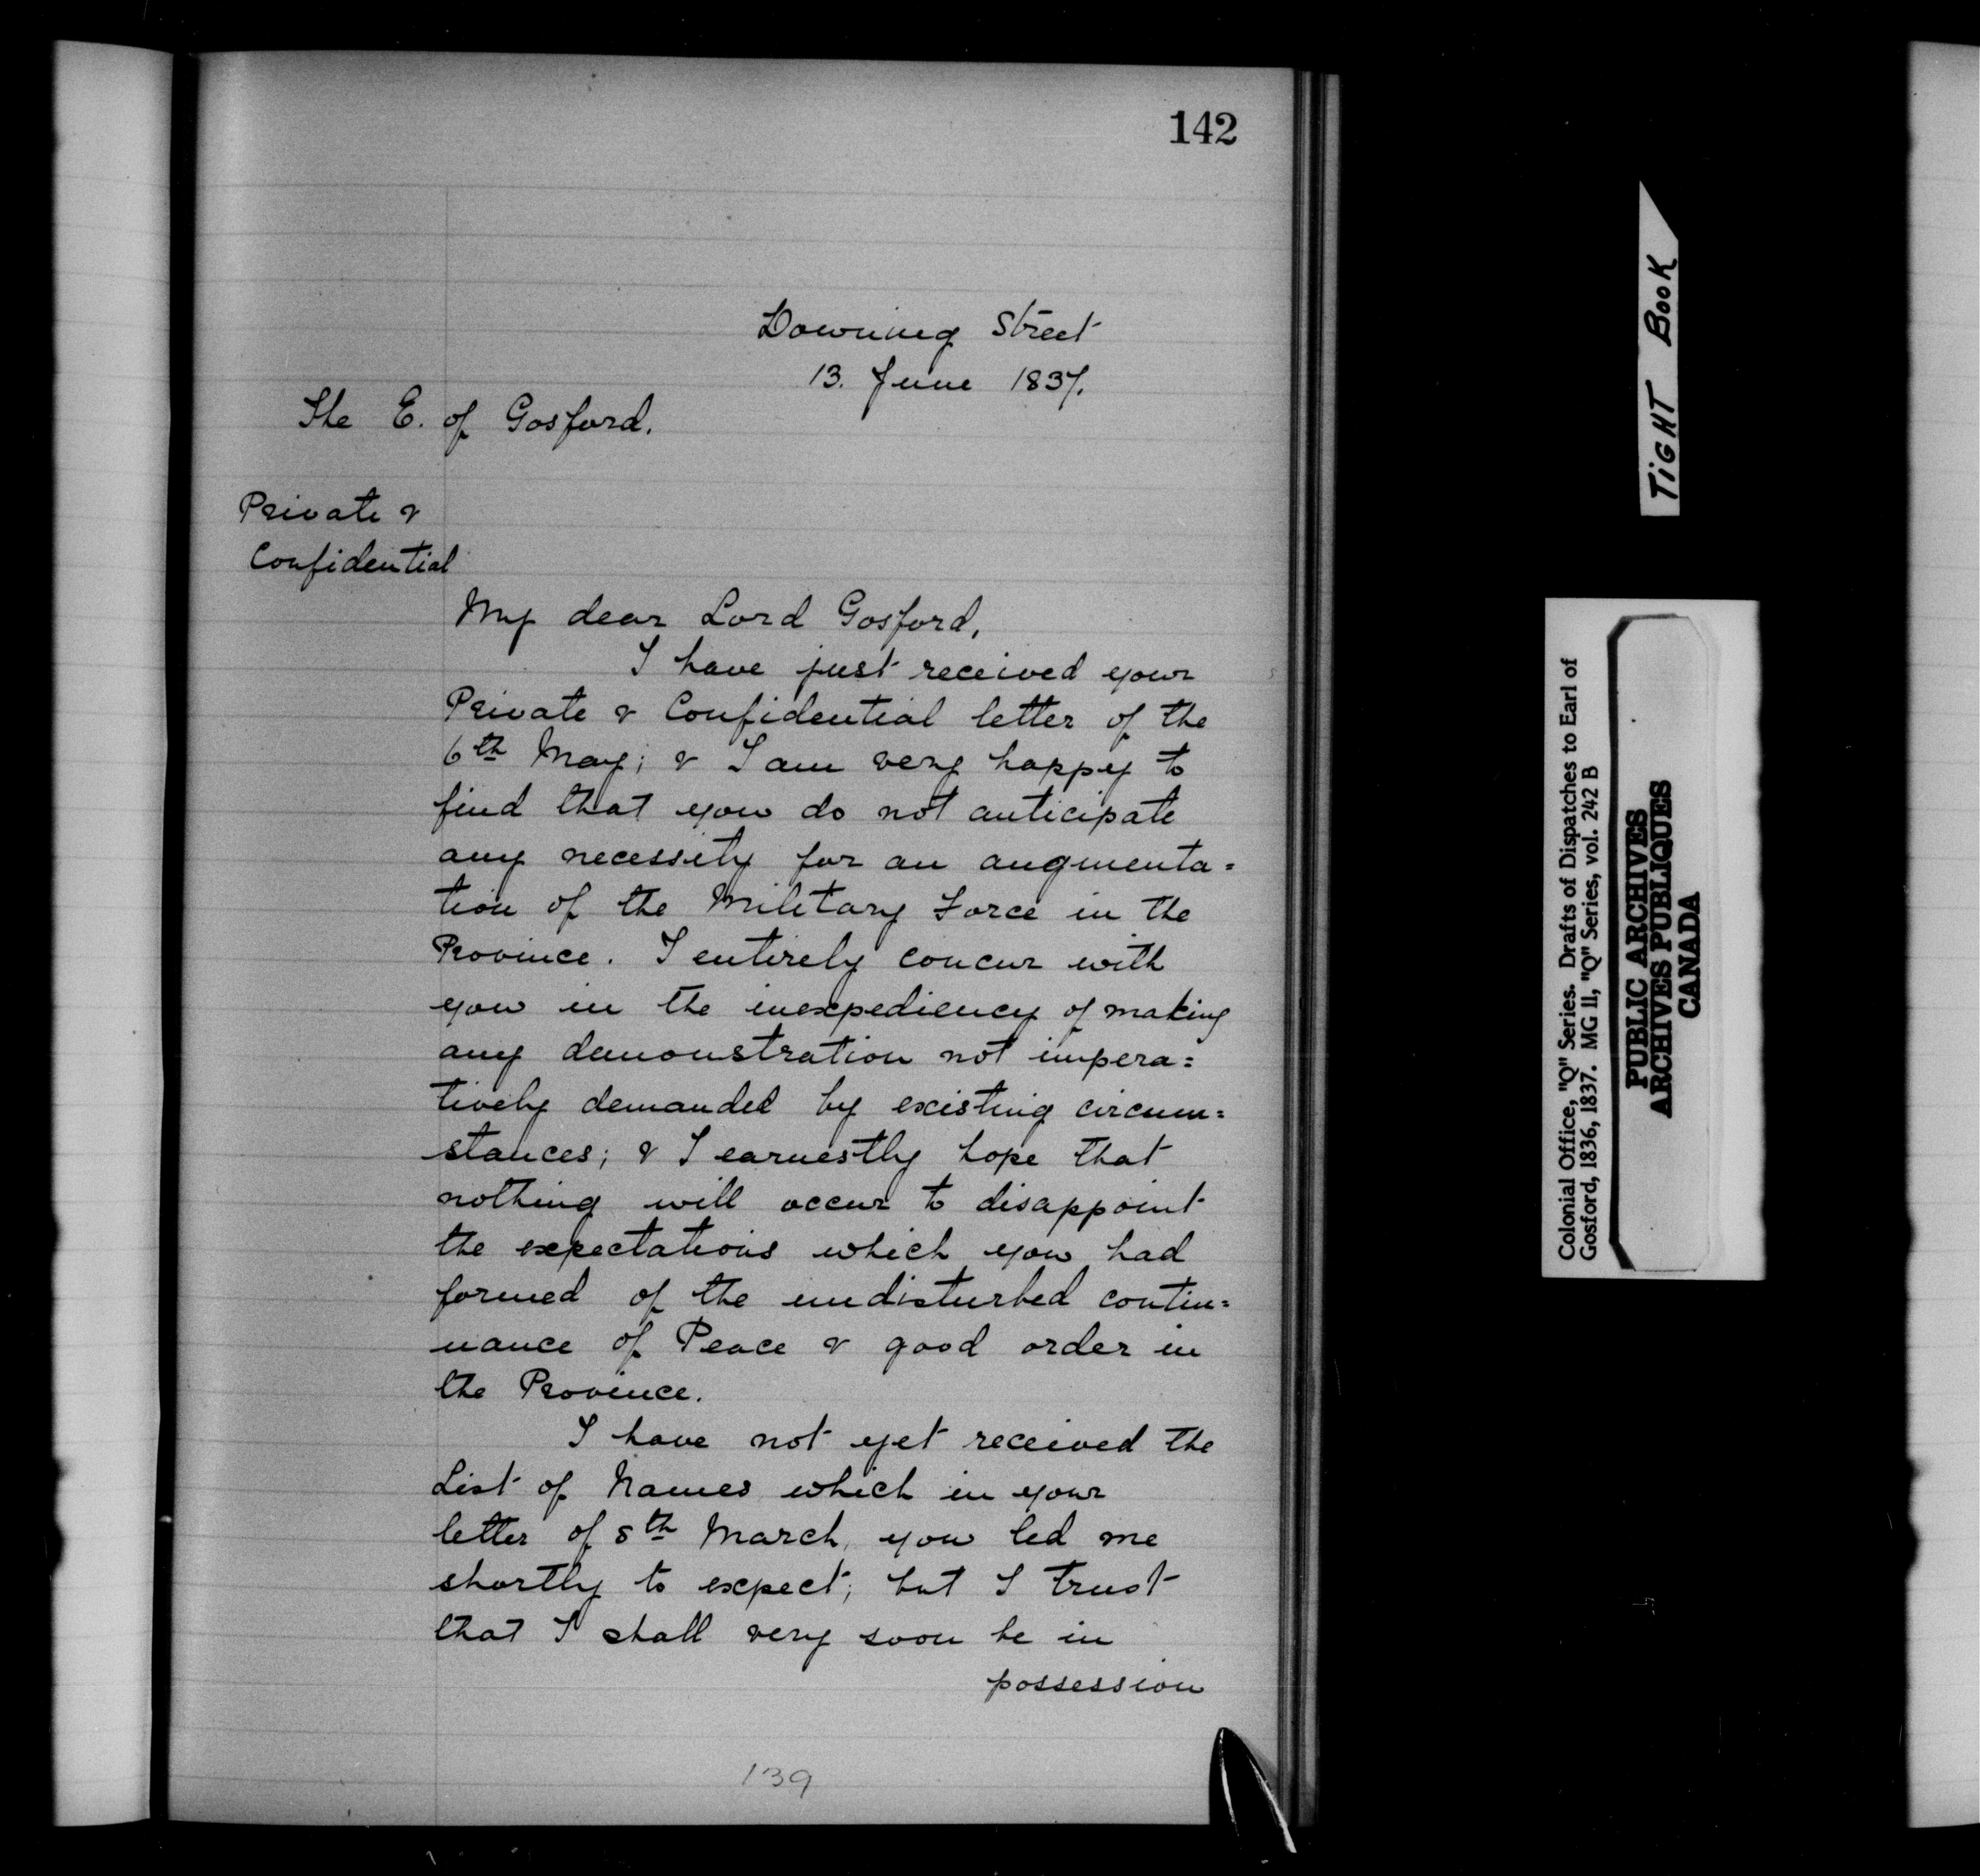 142
Downing Street
13. June 1837.
The E. of Gosford.
Private &
Confidential
My dear Lord Gosford,
I have just received your
Private & Confidential letter of the
6th May; & I am very happy to
find that you do not anticipate
any necessity for an augmenta=
tion of the Military Force in the
Province. I entirely concur with
you in the inexpediency of making
any demonstration not impera=
tively demanded by existing circum=
stances; & I earnestly hope that
nothing will occur to disappoint
the expectations which you had
formed of the undisturbed contin=
uance of Peace & good order in
the Province.
I have not yet received the
List of Names which in your
letter of 8th March, you led me
shortly to expect; but I trust
that I shall very soon be in
possession
139
TIGHT BOOK
Colonial Office, "Q" Series. Drafts of Dispatches to Earl of
Gosford, 1836, 1837. MG 11, "Q" Series, vol. 242 B
PUBLIC ARCHIVES
ARCHIVES PUBLIQUES
CANADA